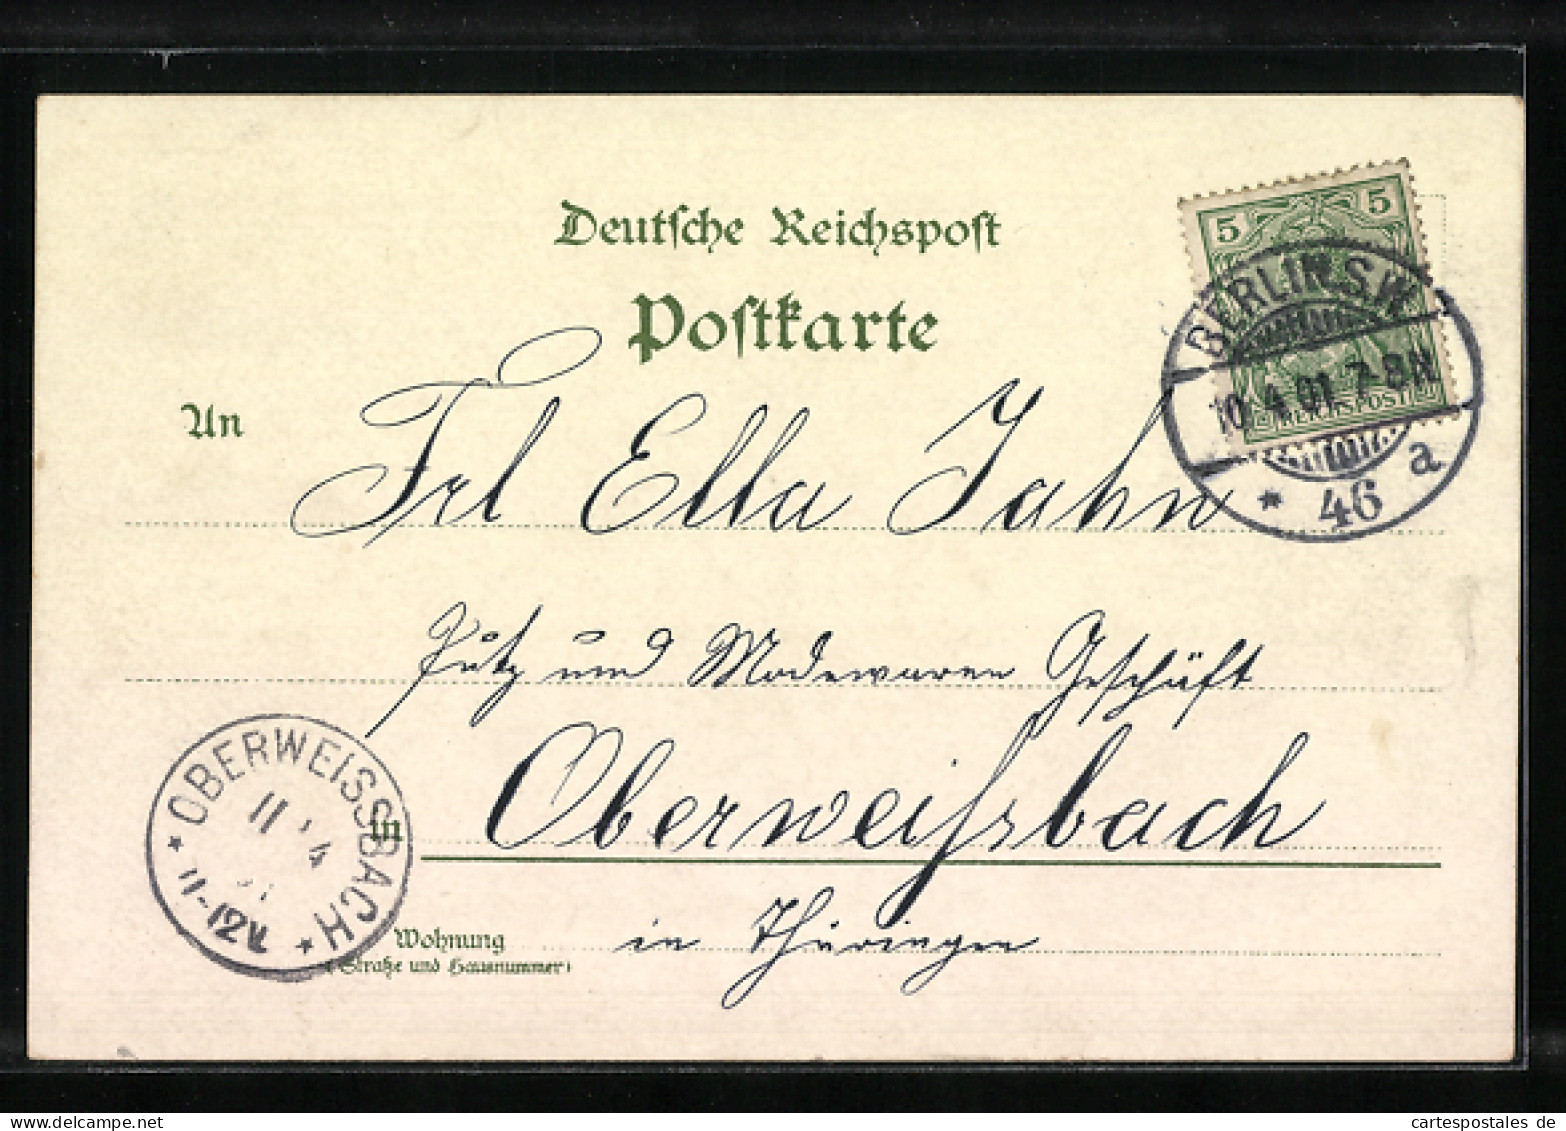 Deutsche Reichspost
Postkarte
5 5
REICHSPOST
BERLIN S.W.
10.4.01.7-8N.
* 46 a
An Frl Ella Jahn
Putz und Modewaren Geschäft
in Oberweißbach
Wohnung in Thüringen
(Straße und Hausnummer)
* OBERWEISSBACH *
11 4
11-12V.
cartespostales de